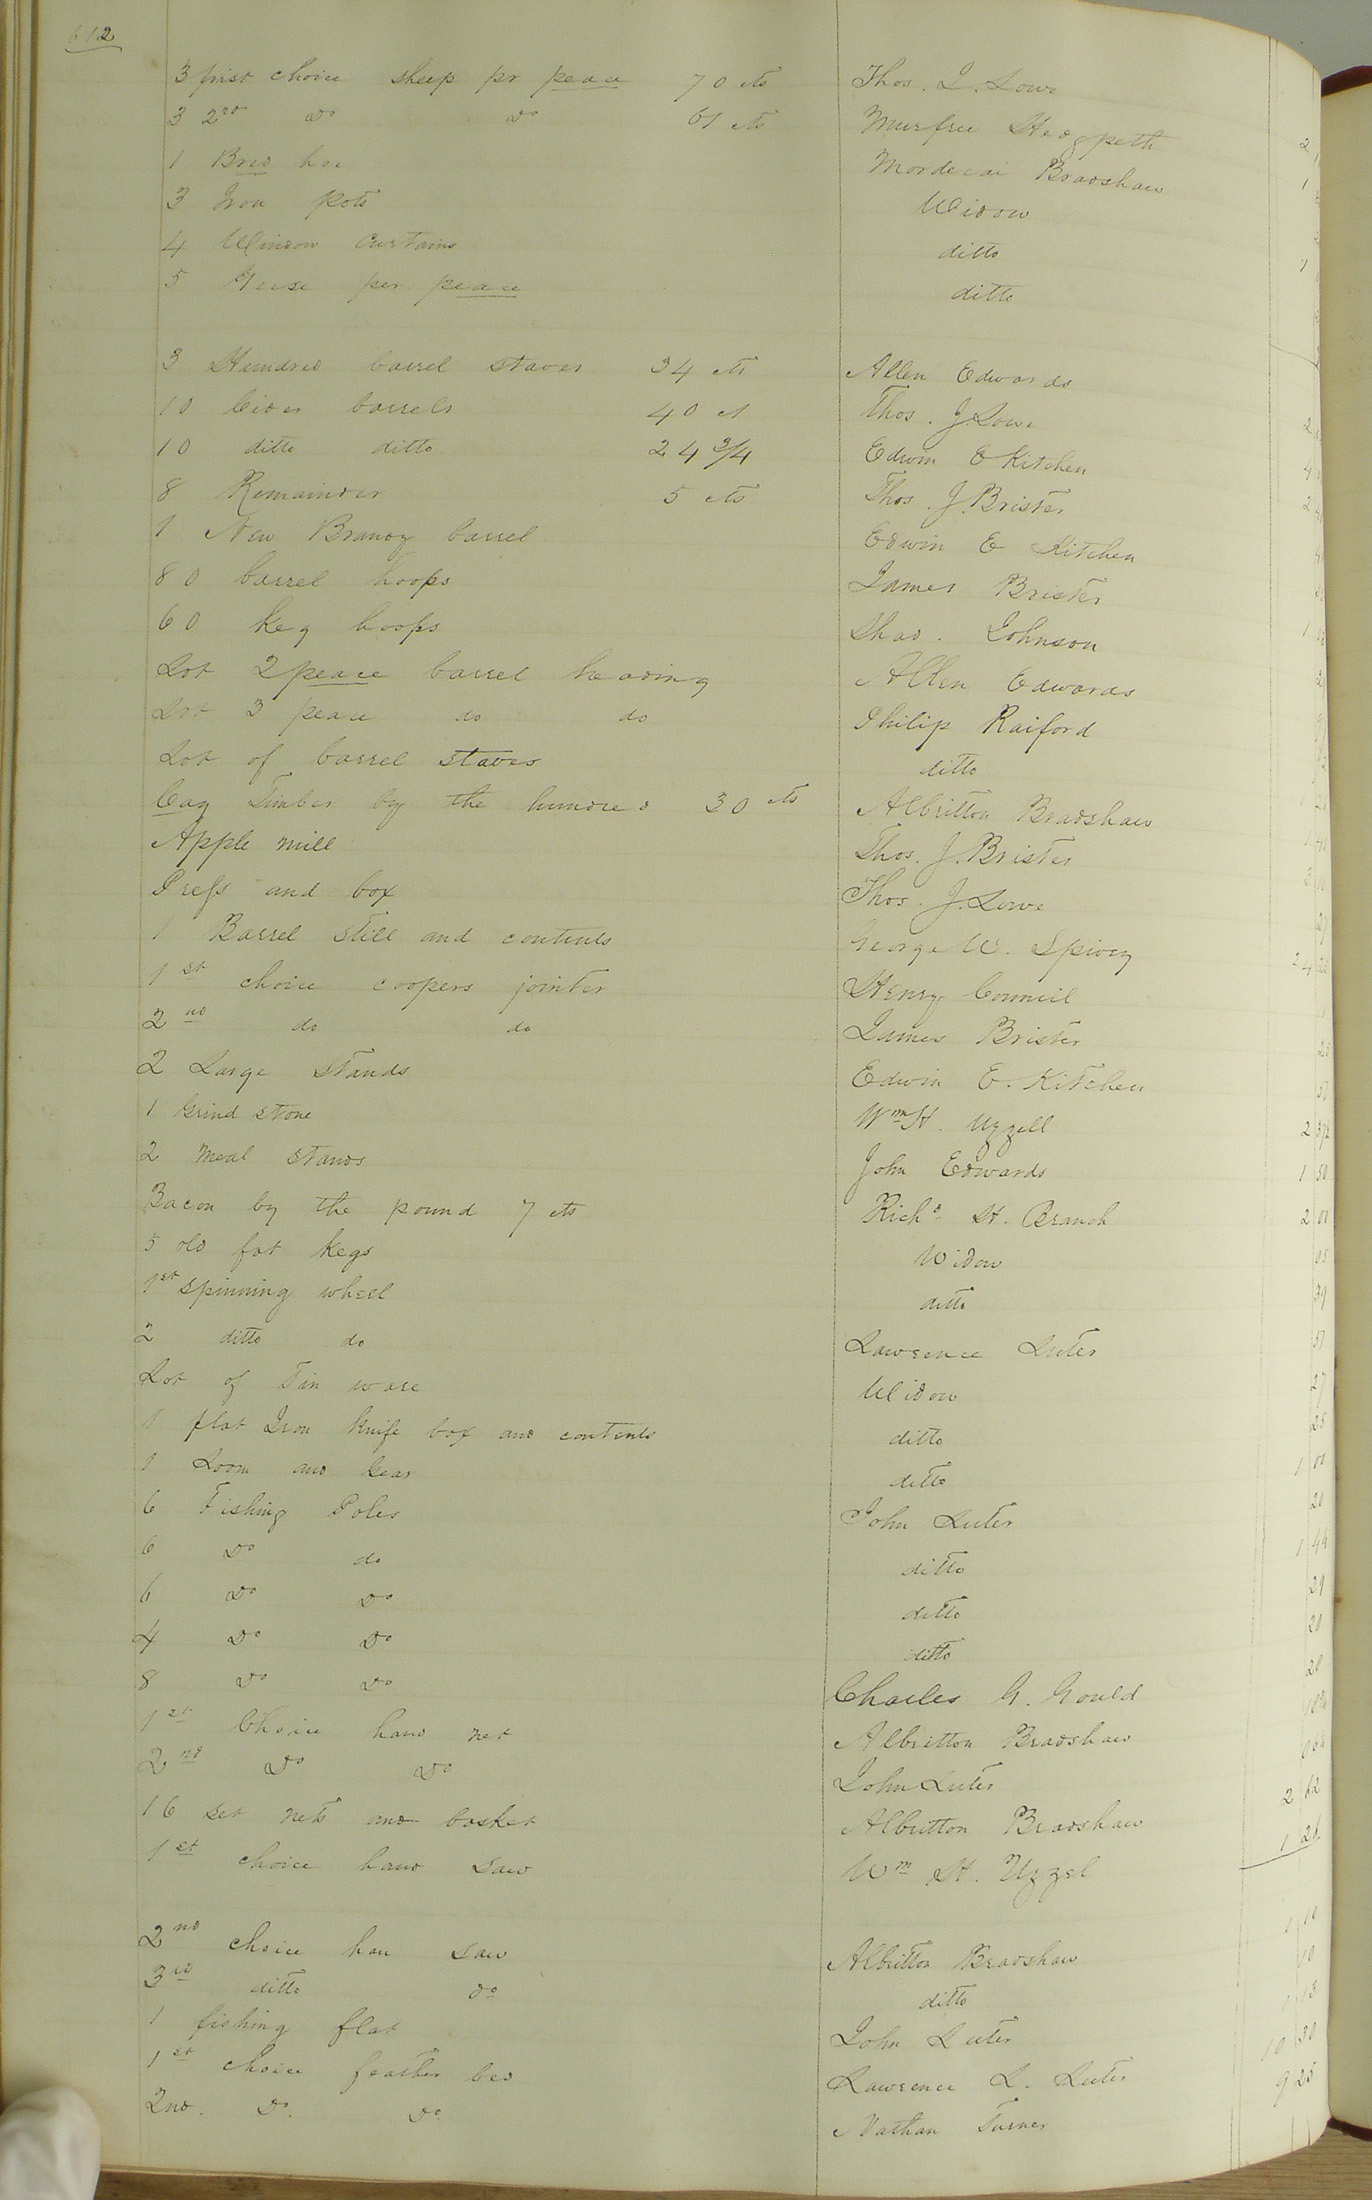 612
3 first choice sheep pr peace 70 cts Thos. J. Lowe
3 2nd Do Do 61 cts Murfree Hedgpeth
1 Bred hoe Mordecai Bradshaw
3 Iron pots Widow
4 Window Curtains ditto
5 Geese per peace ditto
3 Hundred barrel staves 34 cts Allen Edwards
10 Cider barrels 40 ct Thos. J. Lowe
10 ditto ditto 24 3/4 Edwin E Kitchen
8 Remainder 5 cts Thos. J. Brister
1 New Brandy barrel Edwin E Kitchen
80 barrel hoops James Brister
60 keg hoops Johnson
Lot 2 peace barrel heading Allen Edwards
Lot 3 peace do do Philip Raiford
Lot of barrel staves ditto
Cag Timber by the hundred 30 cts Albritton Bradshaw
Apple mill Thos. J. Brister
Press and box Thos. J. Lowe
1 Barrel Still and contents George W. Spivey
1st choice coopers jointer Henry Council
2nd do do James Brister
2 Large Stands Edwin E. Kitchen
1 Grind stone Wm H. Uzzell
2 meal stands John Edwards 1 50
Bacon by the pound 7 cts Richd H. Branch 2 00
5 old fat kegs Widow
1st spinning wheel ditto 39
2 ditto do Lawrence Luter 51
Lot of Tin ware Widow 27
1 flat Iron knife box and contents ditto 25
1 Loom and Gear ditto 1 00
6 Fishing Poles John Luter 20
6 Do do ditto 1 44
6 Do Do ditto 21
4 Do Do ditto 20
8 Do Do Charles G. Gould 20
1st Choice hand net Albritton Bradshaw
2nd Do Do John Luter
16 set nets and basket Albritton Bradshaw 2 62
1st choice hand saw Wm H. Uzzel 1 26
2nd choice han saw Albritton Bradshaw
3rd ditto Do ditto
1 fishing flat John Luter
1st choice feather bed Lawrence L. Luter 10 30
2nd. Do. Do. Nathan Turner 9 25